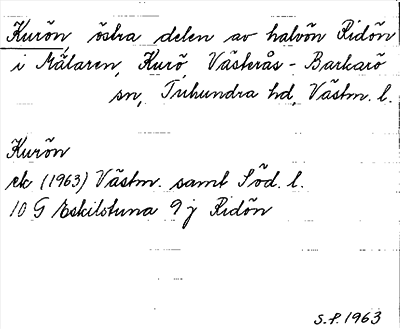 Kurön, östra delen av halvön Ridön
i Mälaren, Kurö, Västerås-Barkarö
sn, Tuhundra hd, Västm. l.
Kurön
ek (1963) Västm. samt Söd. l.
10 G Eskilstuna 9 j Ridön
S.F. 1963